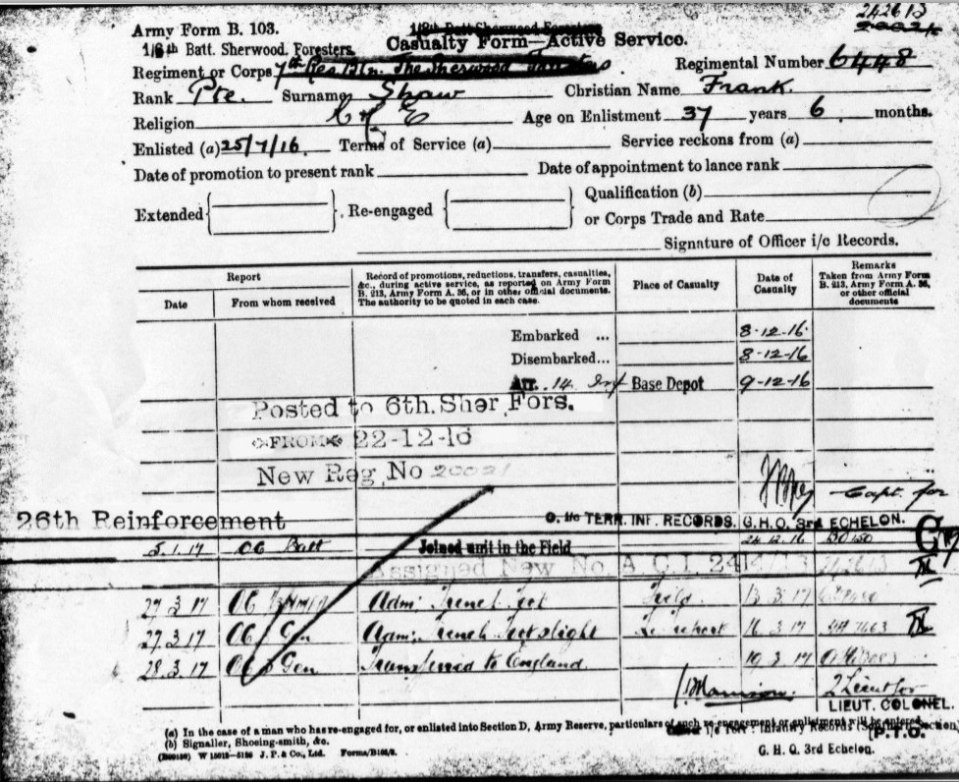 242613
Army Form B. 103.
Casualty Form—Active Service.
1/6th Batt. Sherwood Foresters
Regiment or Corps 7th Res Btn. The Sherwood Foresters Regimental Number 6448
Rank Pte. Surname Shaw Christian Name Frank.
Religion C of E Age on Enlistment 37 years 6 months.
Enlisted (a) 25/7/16 Terms of Service (a) Service reckons from (a)
Date of promotion to present rank Date of appointment to lance rank
Extended Re-engaged Qualification (b)
or Corps Trade and Rate
Signature of Officer i/c Records.
Report
Date From whom received
Record of promotions, reductions, transfers, casualties,
&c., during active service, as reported on Army Form
B. 213, Army Form A. 36, or in other official documents.
The authority to be quoted in each case.
Place of Casualty
Date of
Casualty
Remarks
Taken from Army Form
B. 213, Army Form A. 36,
or other official
documents
Embarked ... 8-12-16
Disembarked... 8-12-16
Arr. 14 Inf Base Depot 9-12-16
Posted to 6th. Sher Fors.
FROM 22-12-16
New Reg, No 20021
Capt. for
26th Reinforcement O. i/c TERR. INF. RECORDS. G.H.Q. 3rd ECHELON.
5.1.17 OC Batt Joined unit in the Field 24.12.16
Assigned New No. A.C.I. 2414/ 242613
27.3.17 OC Adm: Trench Feet Field 13.3.17
27.3.17 OC Gen Adm: Trench Feet slight 16.3.17
28.3.17 OC Gen Transferred to England. 19.3.17
2 Lieut for
LIEUT. COLONEL.
(a) In the case of a man who has re-engaged for, or enlisted into Section D, Army Reserve, particulars of such re-engagement or enlistment will be entered.
(b) Signaller, Shoeing-smith, &c.
Infantry Records
(P.T.O.
J. P. & Co., Ltd. Forms/B103/2.
G. H. Q. 3rd Echelon.